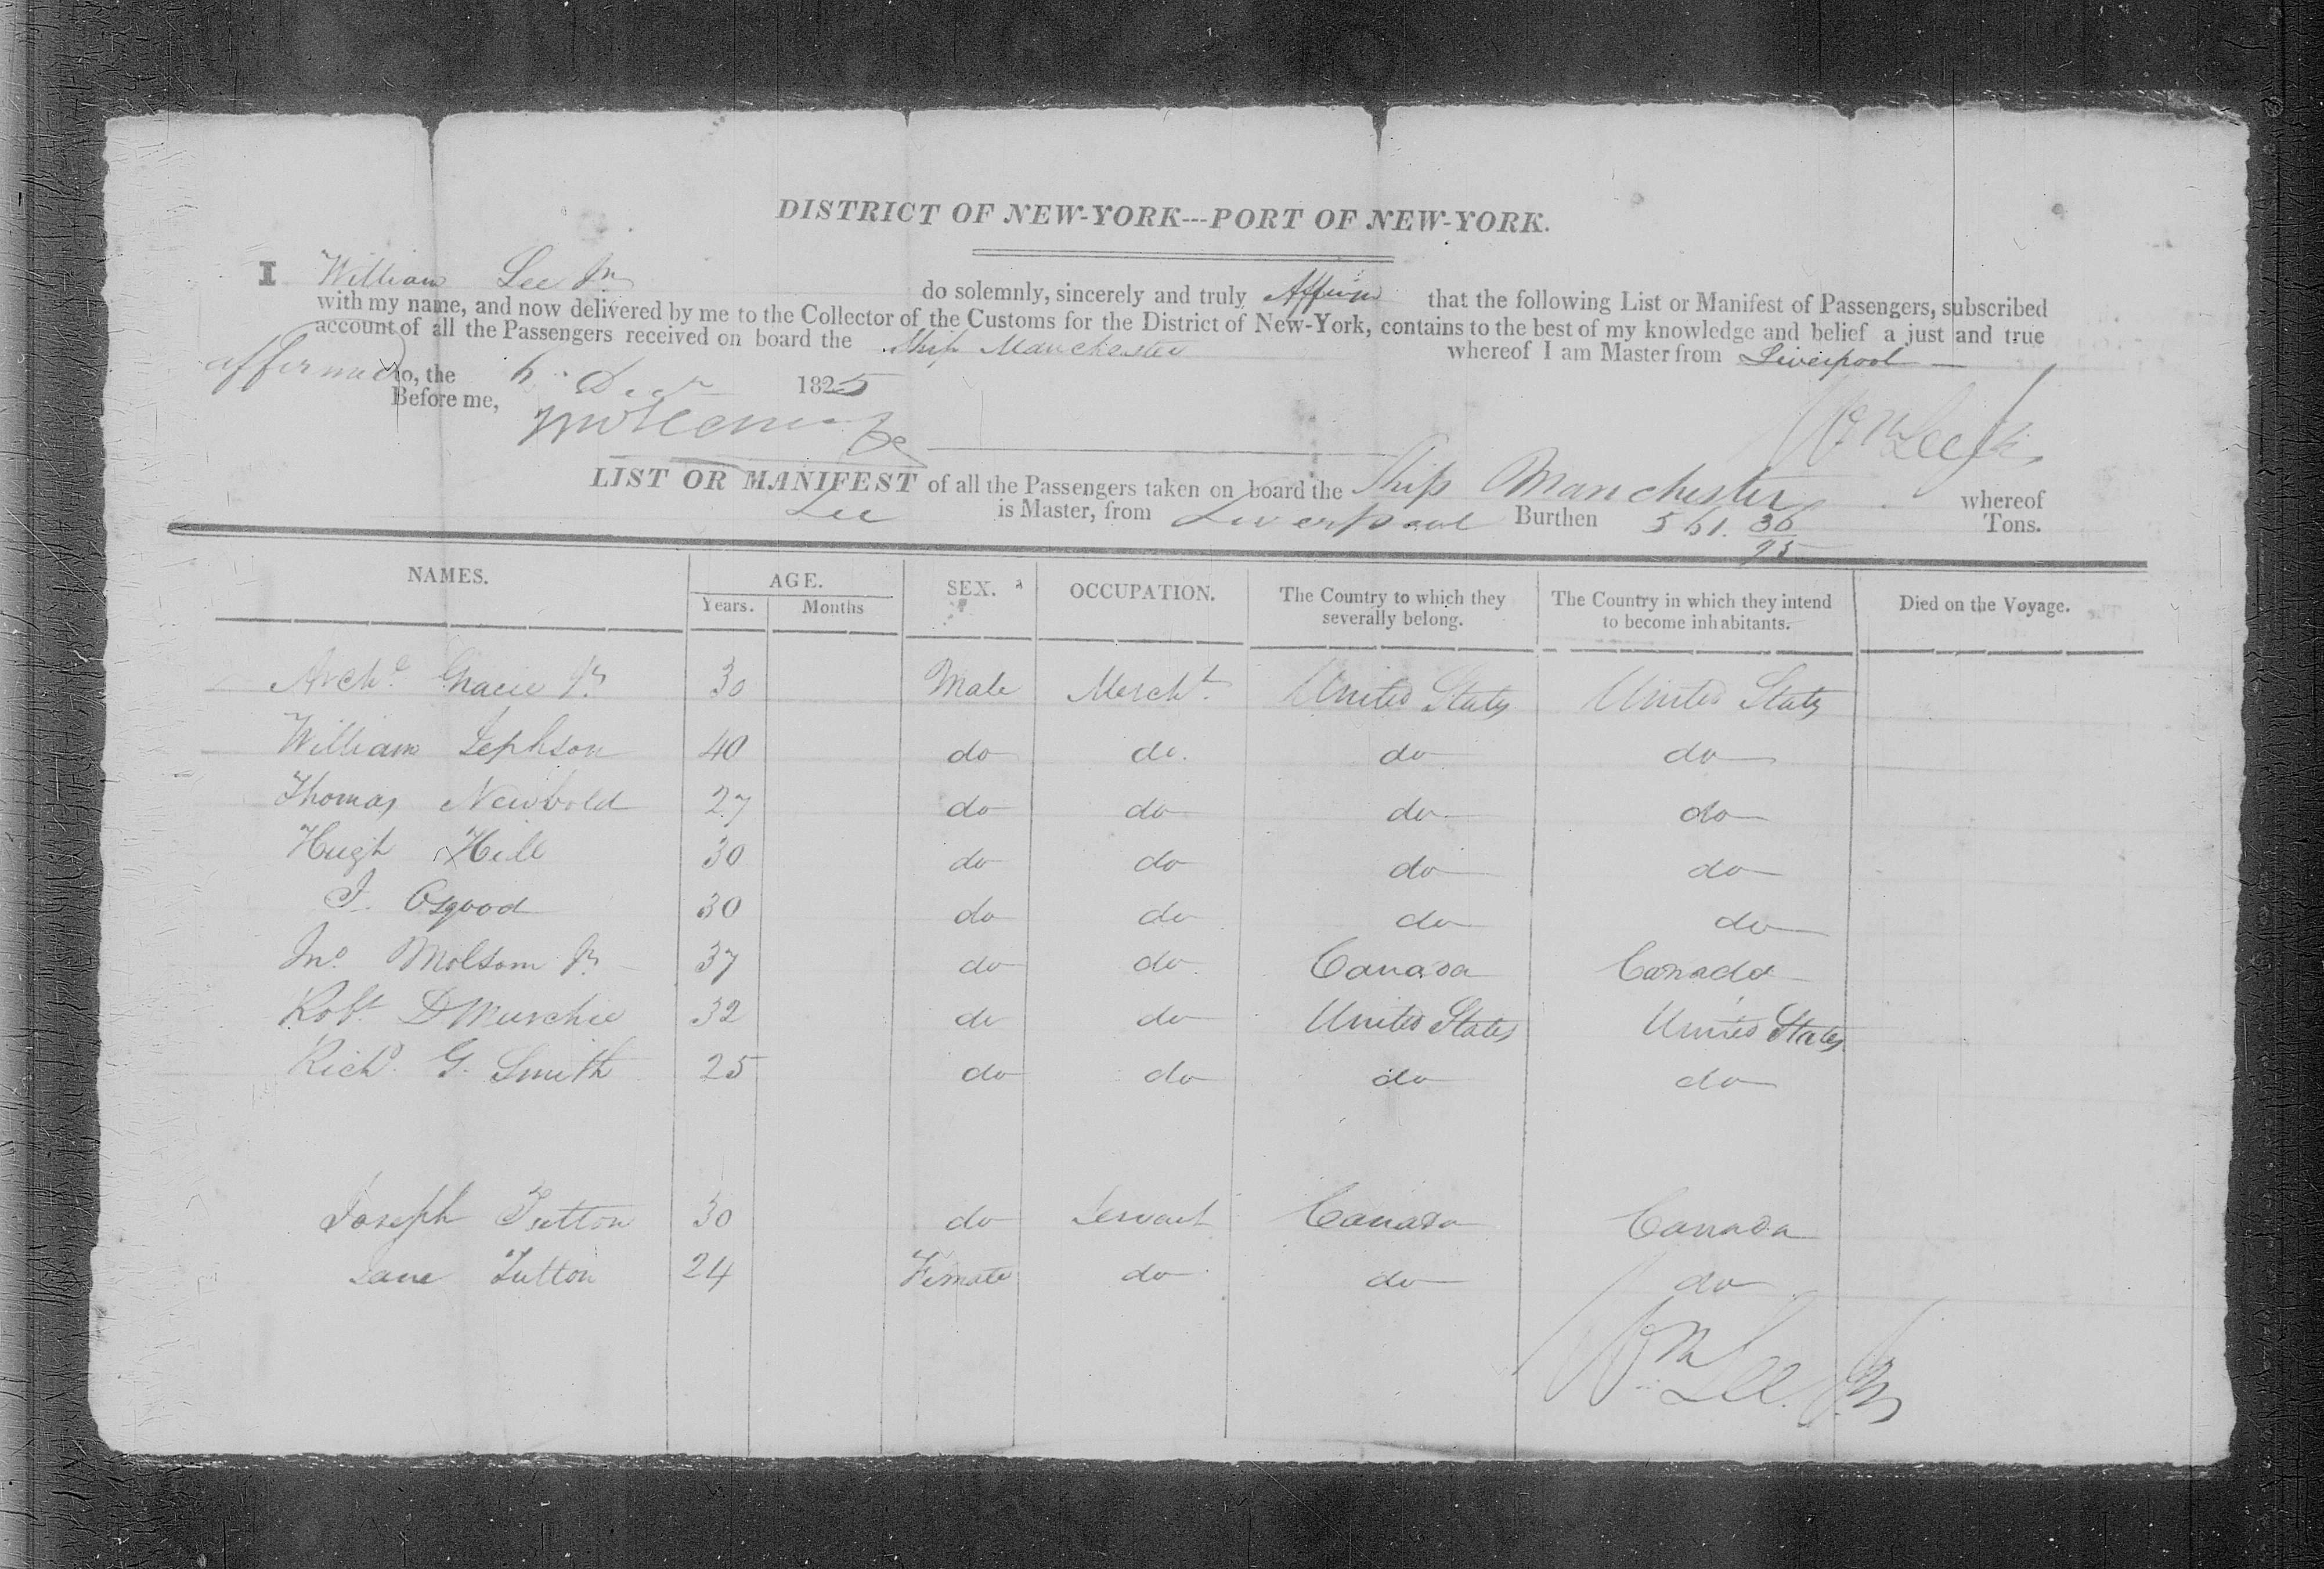 DISTRICT OF NEW-YORK---PORT OF NEW-YORK.
I William Lee Jr. do solemnly, sincerely and truly Affirm that the following List or Manifest of Passengers, subscribed
with my name, and now delivered by me to the Collector of the Customs for the District of New-York, contains to the best of my knowledge and belief a just and true
account of all the Passengers received on board the Ship Manchester whereof I am Master from Liverpool
affirmed to, the Decr 1825
Before me,
Wm Lee Jr.
LIST OR MANIFEST of all the Passengers taken on board the Ship Manchester whereof
Lee is Master, from Liverpool Burthen 561. 36/95 Tons.
NAMES. AGE. SEX. OCCUPATION. The Country to which they severally belong. The Country in which they intend to become inhabitants. Died on the Voyage.
Years. Months
Archd. Gracie Jr. 30 Male Mercht. United States United States
William Jephson 40 do do. do do
Thomas Newbold 27 do do do do
Hugh Hill 30 do do do do
I. Osgood 30 do do do do
Jno. Molsom Jr. 37 do do Canada Canada
Robt. D Murchie 32 do do United States United States
Richd. G. Smith 25 do do do do
Joseph 30 do Servant Canada Canada
Jane 24 Female do do do
Wm Lee. Jr.